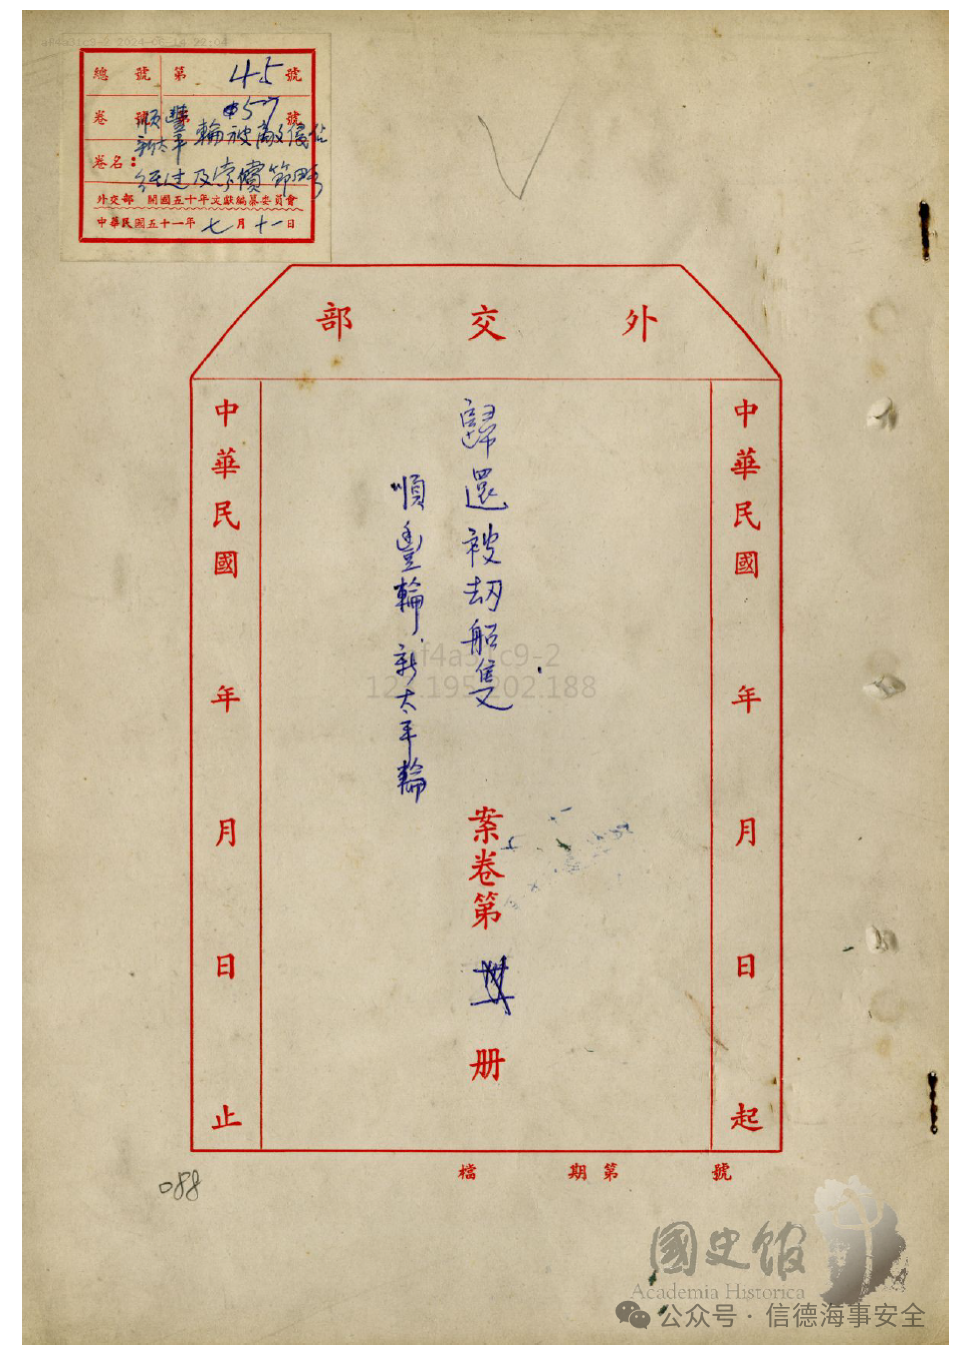 總號第45號
卷號第57號
卷名：順豐 新太平 輪被敵侵佔
經过及索償節略
外交部 開國五十年文獻編纂委員會
中華民國五十一年七月十一日
外交部
中華民國 年 月 日 起
歸還被劫船隻
案卷第 册
順豐輪、新太平輪
中華民國 年 月 日 止
檔 期第 號
088
af4a31c9-2
國史館
Academia Historica
公众号·信德海事安全